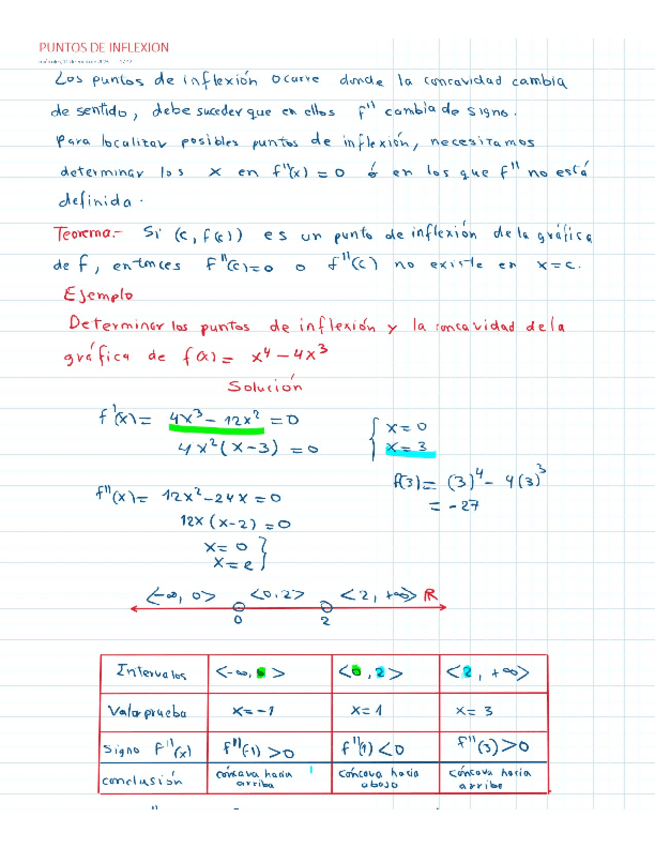 PUNTOS DE INFLEXION
Los puntos de inflexión ocurre donde la concavidad cambia
de sentido, debe suceder que en ellos f'' cambia de signo.
Para localizar posibles puntos de inflexión, necesitamos
determinar los x en f''(x) = 0 ó en los que f'' no está
definida.
Teorema.- Si (c, f(c)) es un punto de inflexión de la gráfica
de f, entonces f''(c)=0 o f''(c) no existe en x=c.
Ejemplo
Determinar los puntos de inflexión y la concavidad de la
gráfica de f(x) = x⁴ - 4x³
Solución
f'(x) = 4x³ - 12x² = 0
4x²(x-3) = 0
x = 0
x = 3
f(3) = (3)⁴ - 4(3)³
= -27
f''(x) = 12x² - 24x = 0
12x(x-2) = 0
x = 0
x = 2
<-∞, 0> <0, 2> <2, +∞> R
0 2
Intervalos <-∞, 0> <0, 2> <2, +∞>
Valor prueba x = -1 x = 1 x = 3
Signo f''(x) f''(-1) > 0 f''(1) < 0 f''(3) > 0
conclusión cóncava hacia arriba cóncava hacia abajo cóncava hacia arriba